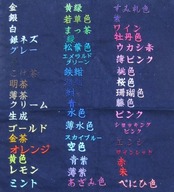 金
銀
白
銀ネズ
グレー
こげ茶
明茶
薄茶
クリーム
生成
ゴールド
金茶
オレンジ
黄色
レモン
ミント
黄緑
若草色
まっ茶
緑
松葉色
エメラルド
グリーン
鉄紺
紺
水色
薄水色
スカイブルー
空色
青紫
薄紫
あざみ色
すみれ色
紫
ワイン
牡丹色
ウカシ赤
薄ピンク
桃色
桜色
珊瑚色
藤色
ピンク
ショッキング
ピンク
赤
朱
べにひ色